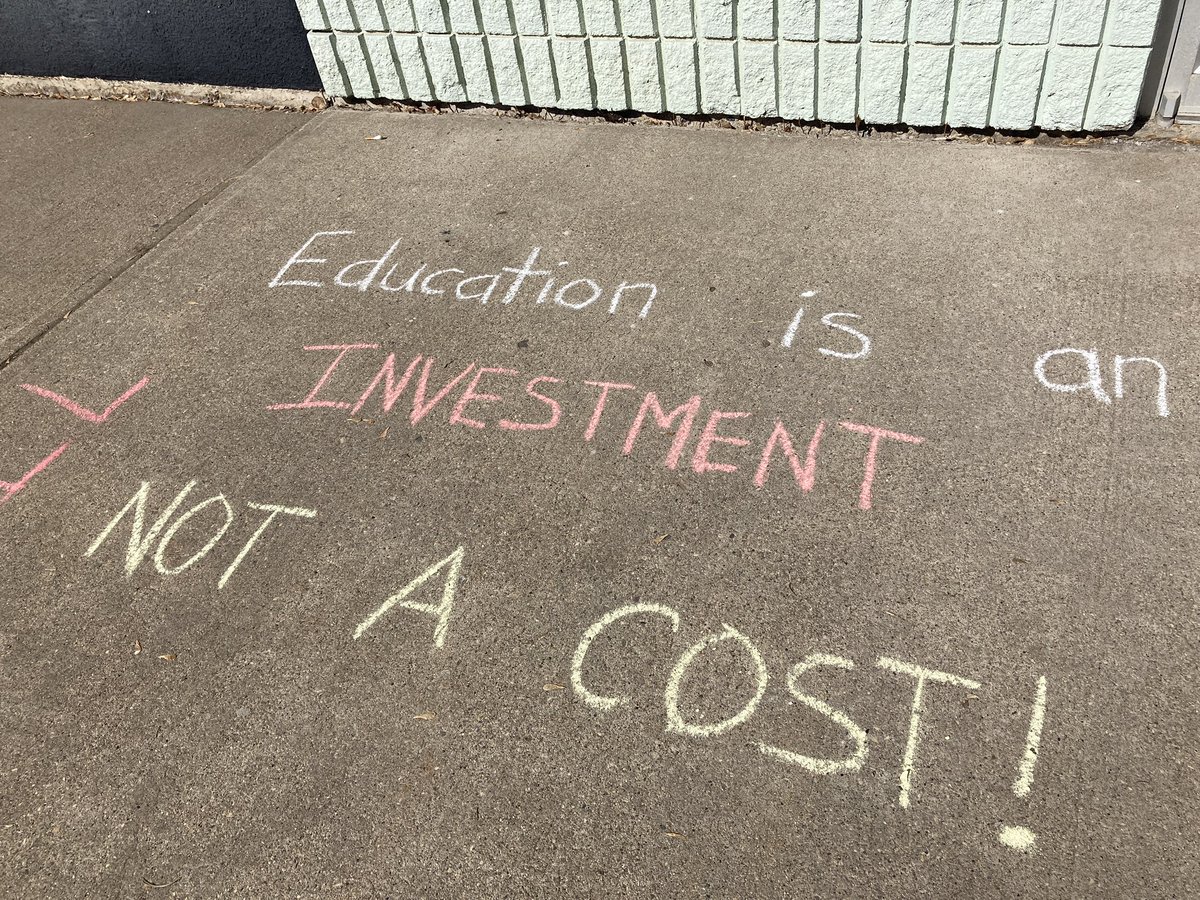 Education is an
INVESTMENT
NOT A COST!